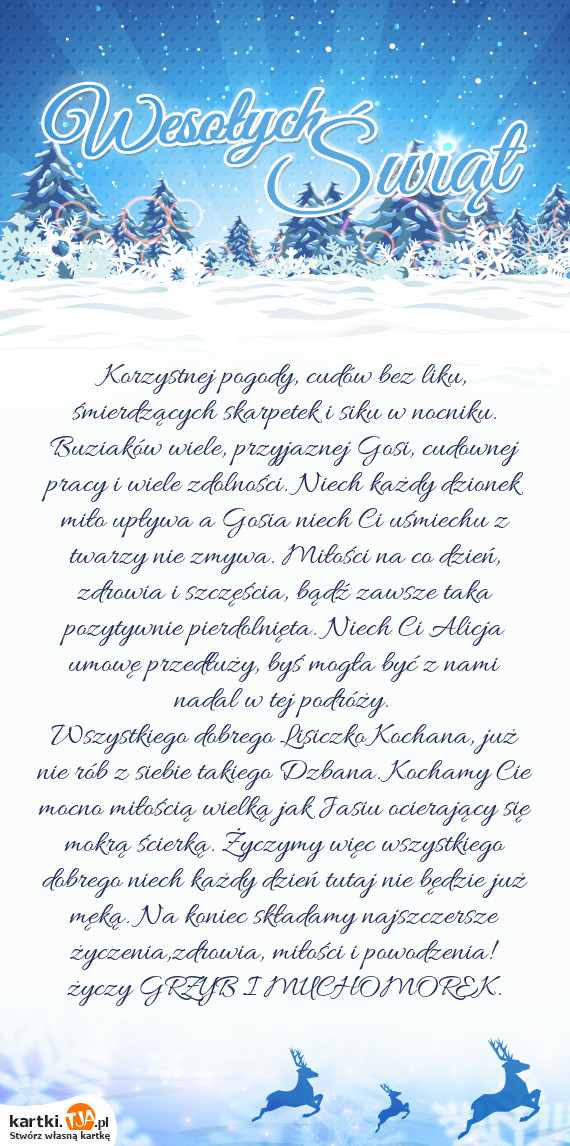 Wesołych
Świąt
Korzystnej pogody, cudów bez liku,
śmierdzących skarpetek i siku w nocniku.
Buziaków wiele, przyjaznej Gosi, cudownej
pracy i wiele zdolności. Niech każdy dzionek
miło upływa a Gosia niech Ci uśmiechu z
twarzy nie zmywa. Miłości na co dzień,
zdrowia i szczęścia, bądź zawsze taka
pozytywnie pierdolnięta. Niech Ci Alicja
umowę przedłuży, byś mogła być z nami
nadal w tej podróży.
Wszystkiego dobrego Lisiczko Kochana, już
nie rób z siebie takiego Dzbana. Kochamy Cie
mocno miłością wielką jak Jasiu ocierający się
mokrą ścierką. Życzymy więc wszystkiego
dobrego niech każdy dzień tutaj nie będzie już
męką. Na koniec składamy najszczersze
życzenia,zdrowia, miłości i powodzenia!
życzy GRZYB I MUCHOMOREK.
kartki.TJA.pl
Stwórz własną kartkę